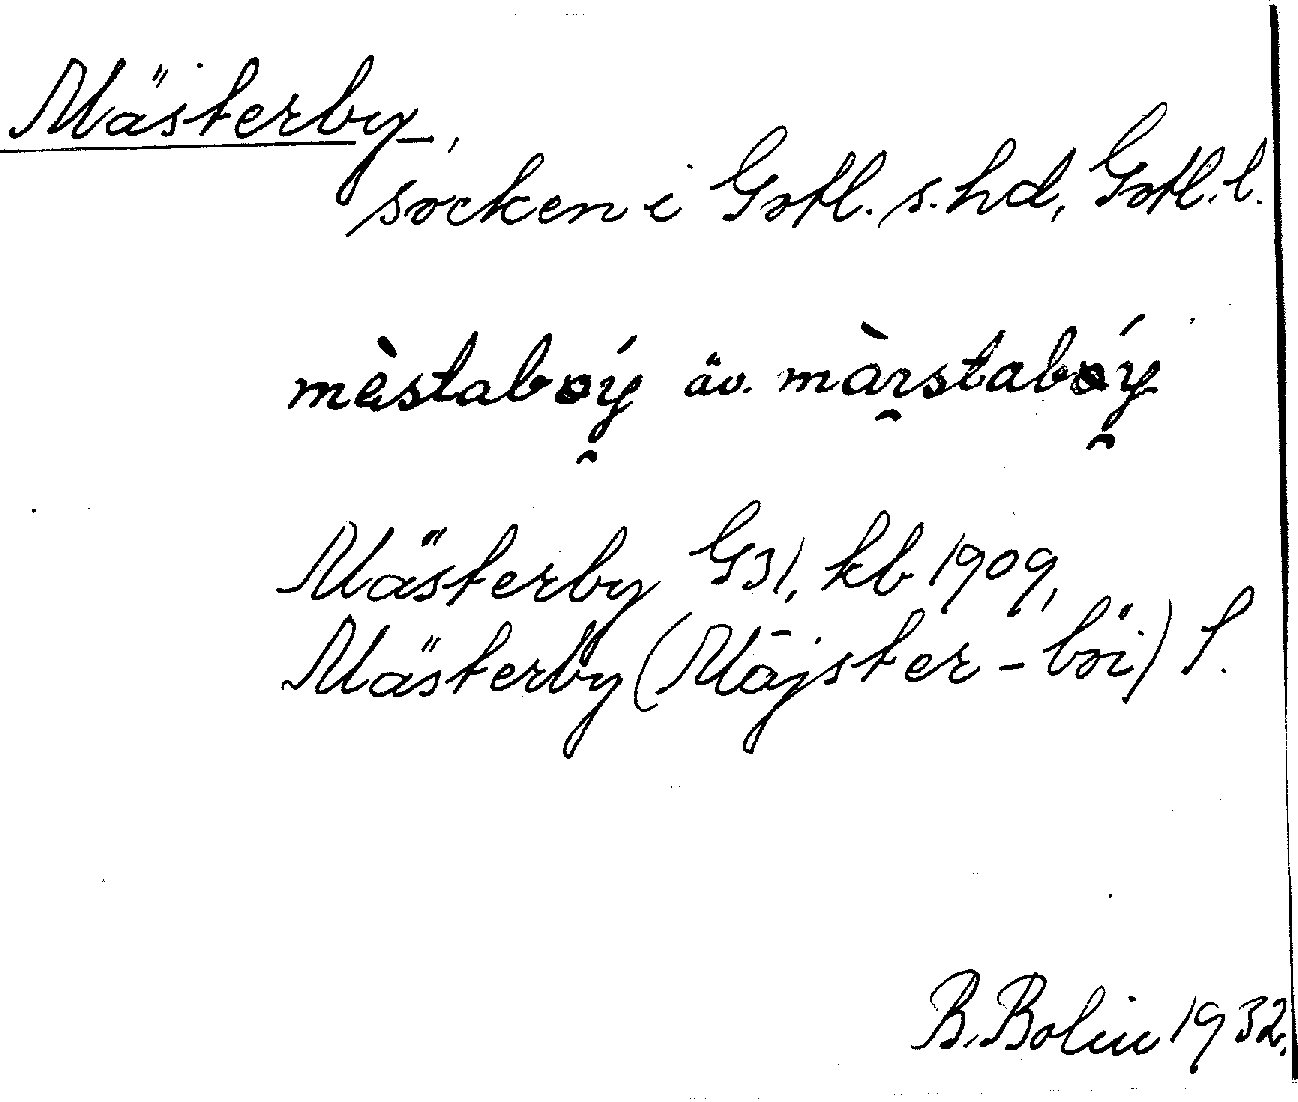 Mästerby,
socken i Gotl. s. hd, Gotl. l.
mèstaboý äv. màrstaboý
Mästerby G31, kb 1909,
Mästerby (Mäjster-böi) S.
B. Bolin 1932.